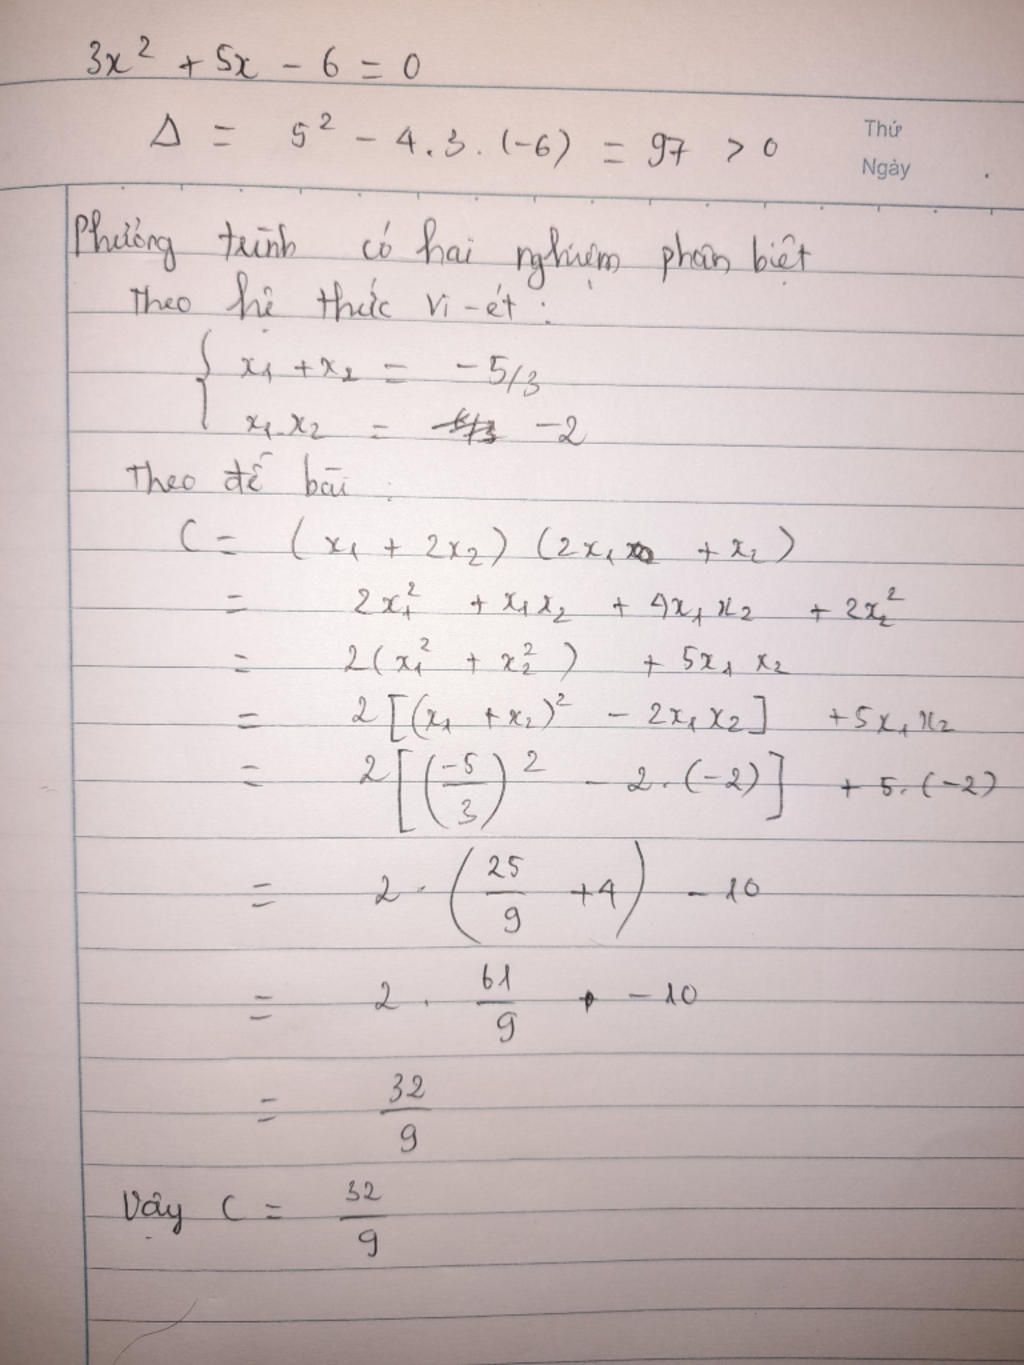 3x² + 5x - 6 = 0
Δ = 5² - 4.3.(-6) = 97 > 0
Thứ
Ngày
Phương trình có hai nghiệm phân biệt
Theo hệ thức Vi-ét :
{ x₁ + x₂ = -5/3
x₁.x₂ = -2
Theo đề bài :
C = (x₁ + 2x₂) (2x₁ + x₂)
= 2x₁² + x₁x₂ + 4x₁x₂ + 2x₂²
= 2(x₁² + x₂²) + 5x₁x₂
= 2[(x₁ + x₂)² - 2x₁x₂] + 5x₁x₂
= 2[(-5/3)² - 2.(-2)] + 5.(-2)
= 2.(25/9 + 4) - 10
= 2 . 61/9 - 10
= 32/9
Vậy C = 32/9